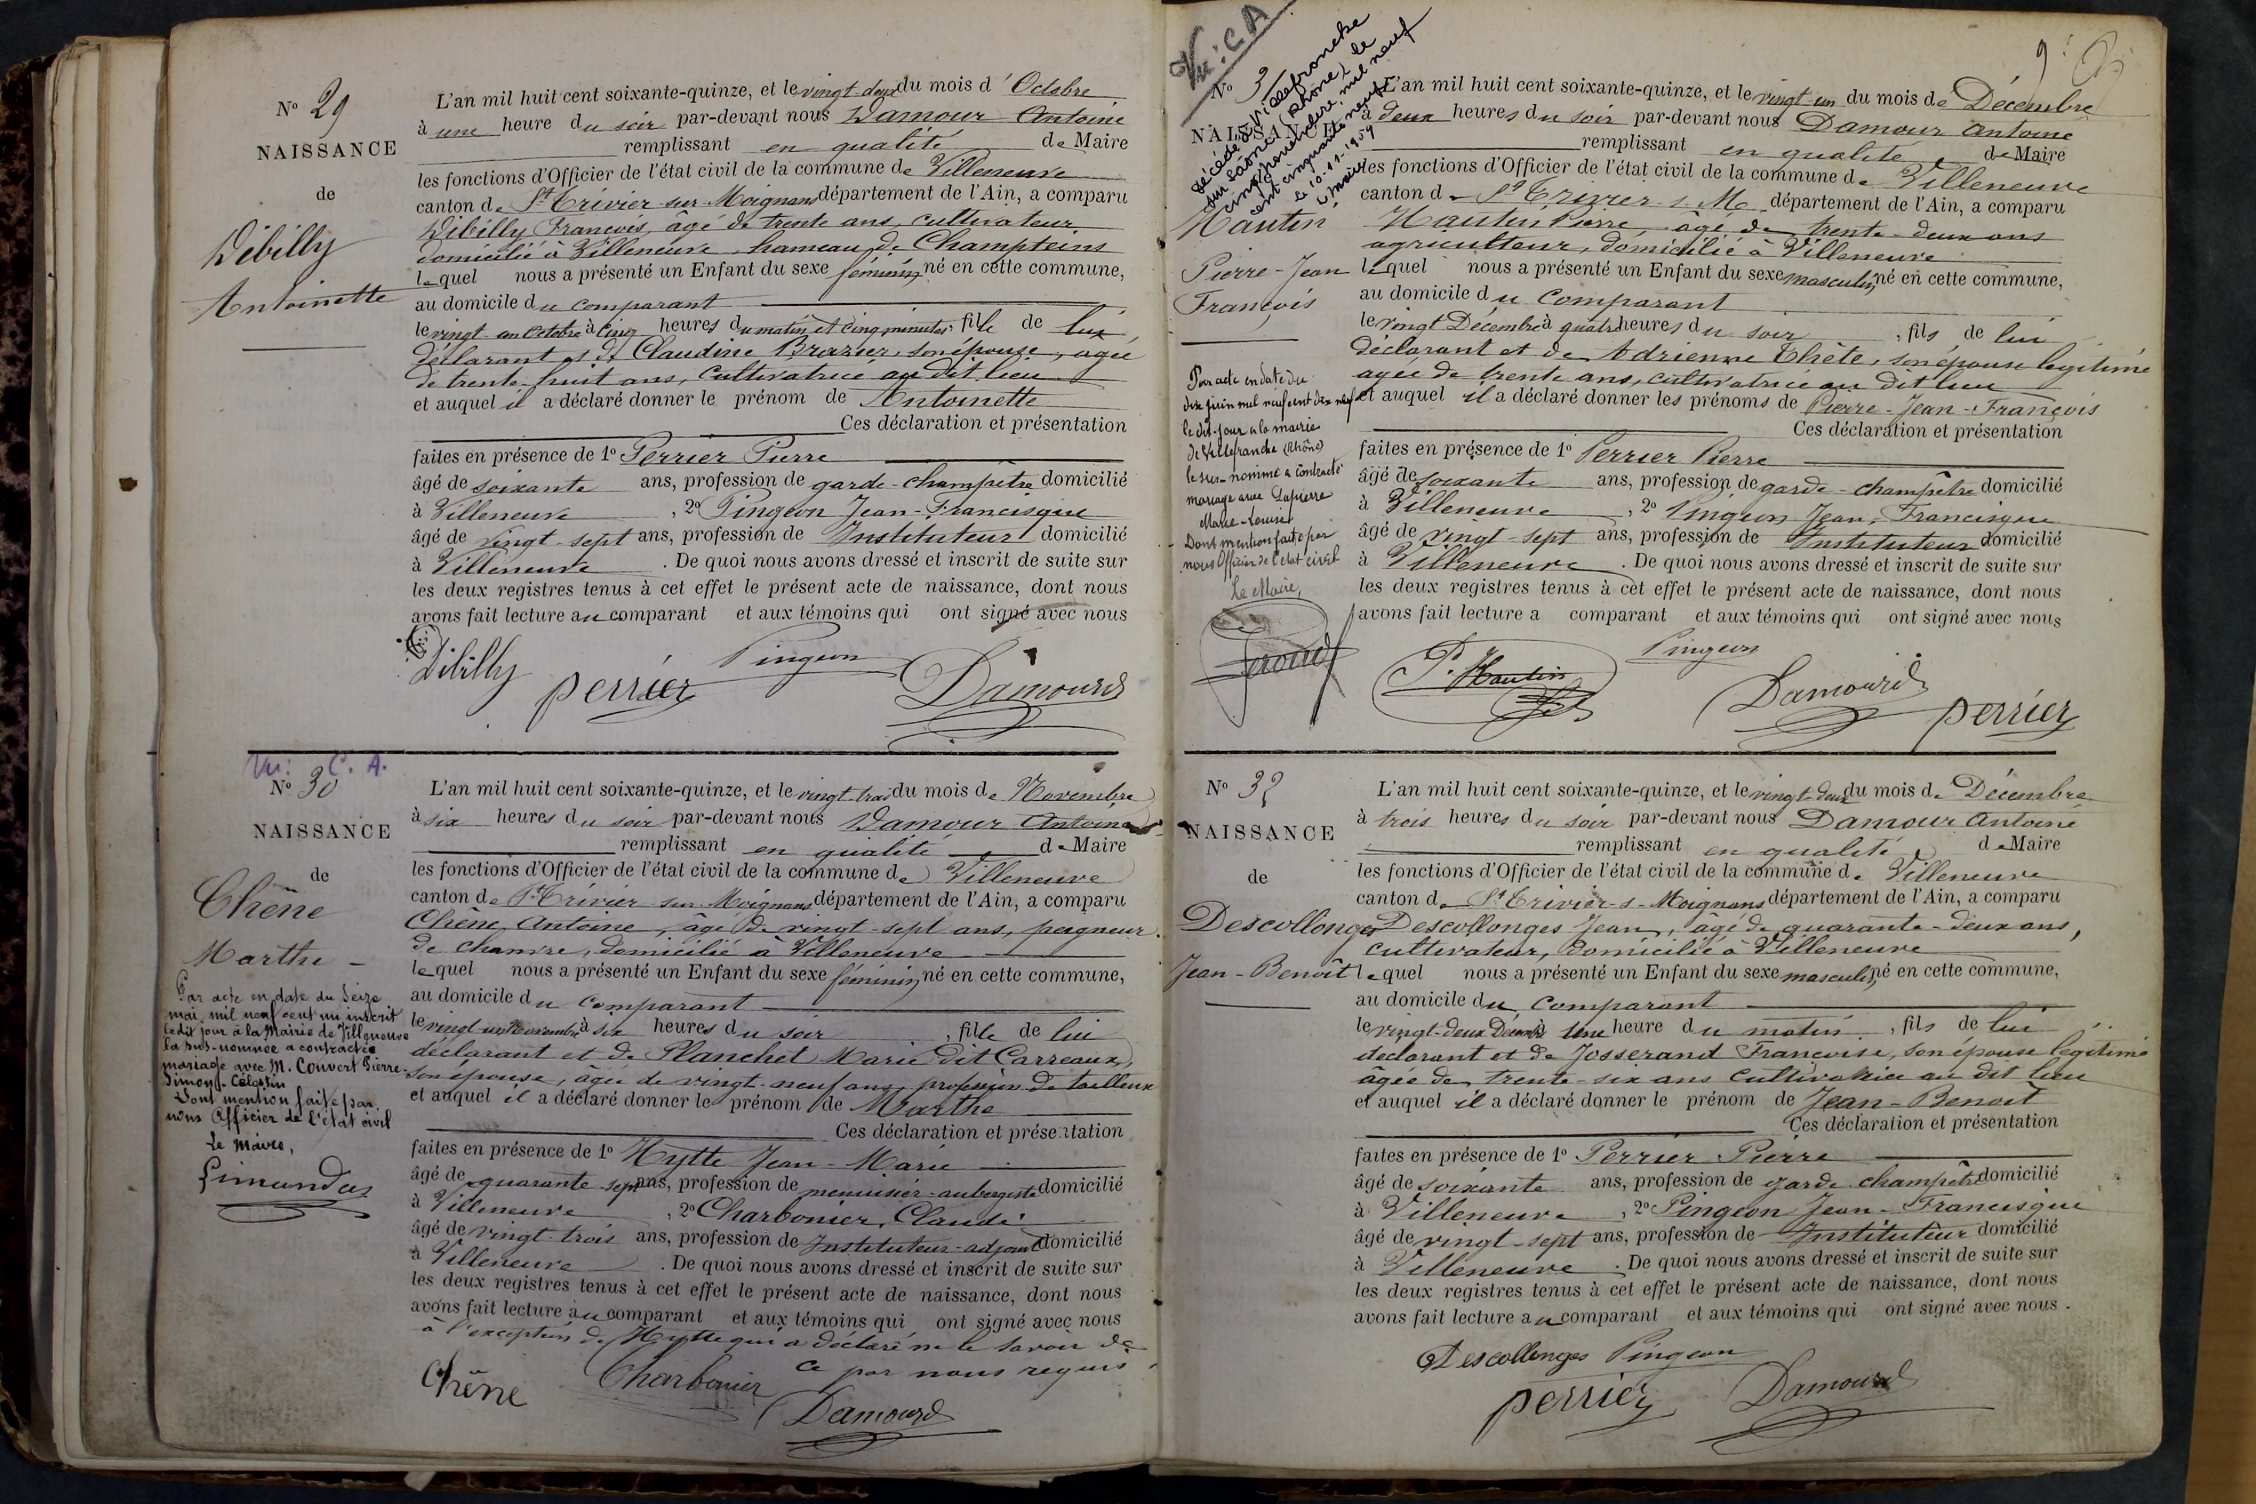 N° 29
NAISSANCE
de
Dibilly
Antoinette
L'an mil huit cent soixante-quinze, et le vingt-deux du mois d'Octobre
à une heure du soir par-devant nous Damour Antoine
remplissant en qualité de Maire
les fonctions d'Officier de l'état civil de la commune de Villeneuve
canton de St Trivier-sur-Moignans département de l'Ain, a comparu
Dibilly François, âgé de trente ans, cultivateur
domicilié à Villeneuve, hameau de Champteins
lequel nous a présenté un Enfant du sexe féminin, né en cette commune,
au domicile du comparant
le vingt-un Octobre à cinq heures du matin et cinq minutes fille de lui
déclarant et de Claudine Brazier, son épouse, agée
de trente-huit ans, cultivatrice au dit lieu
et auquel il a déclaré donner le prénom de Antoinette
Ces déclaration et présentation
faites en présence de 1° Perrier Pierre
âgé de soixante ans, profession de garde-champêtre domicilié
à Villeneuve, 2° Pingeon Jean-Francisque
âgé de vingt-sept ans, profession de Instituteur domicilié
à Villeneuve. De quoi nous avons dressé et inscrit de suite sur
les deux registres tenus à cet effet le présent acte de naissance, dont nous
avons fait lecture au comparant et aux témoins qui ont signé avec nous
Dibilly perrier Pingeon Damourd
Vu: C. A.
N° 30
NAISSANCE
de
Chêne
Marthe
Par acte en date du Seize
mai mil neuf cent un inscrit
le dit jour à la Mairie de Villeneuve
la sus-nommée a contracté
mariage avec M. Convert Pierre-
Simon-Célestin
Dont mention faite par
nous Officier de l'état civil
Le Maire,
L'an mil huit cent soixante-quinze, et le vingt-trois du mois de Novembre
à six heures du soir par-devant nous Damour Antoine
remplissant en qualité de Maire
les fonctions d'Officier de l'état civil de la commune de Villeneuve
canton de St Trivier-sur-Moignans département de l'Ain, a comparu
Chêne Antoine, âgé de vingt-sept ans, peigneur
de chanvre, domicilié à Villeneuve
lequel nous a présenté un Enfant du sexe féminin, né en cette commune,
au domicile du comparant
le vingt un Novembre à six heures du soir, fille de lui
déclarant et de Planchet Marie dit Carreaux,
son épouse, âgée de vingt-neuf ans, profession de tailleuse
et auquel il a déclaré donner le prénom de Marthe
Ces déclaration et présentation
faites en présence de 1° Hytte Jean-Marie
âgé de quarante-sept ans, profession de menuisier-aubergiste domicilié
à Villeneuve, 2° Charbonier, Claude
âgé de vingt-trois ans, profession de Instituteur-adjoint domicilié
à Villeneuve. De quoi nous avons dressé et inscrit de suite sur
les deux registres tenus à cet effet le présent acte de naissance, dont nous
avons fait lecture au comparant et aux témoins qui ont signé avec nous
à l'exception de Hytte qui a déclaré ne le savoir de
ce par nous requis
Chêne Charbonier Damourd
Vu: C A
9
N° 3
NAISSANCE
décédé à Villefranche
sur Saône (Rhône) le
cinq novembre mil neuf
cent cinquante neuf
le 10-11-1959
Hautin
Pierre-Jean
François
Par acte en date du
dix juin mil neuf cent dix neuf
le dit jour à la mairie
de Villefranche (Rhône)
le sus-nommé a contracté
mariage avec Lapierre
Marie-Louise
Dont mention faite par
nous Officier de l'état civil
Le Maire,
L'an mil huit cent soixante-quinze, et le vingt-un du mois de Décembre
à deux heures du soir par-devant nous Damour Antoine
remplissant en qualité de Maire
les fonctions d'Officier de l'état civil de la commune de Villeneuve
canton de St Trivier-s-M. département de l'Ain, a comparu
Hautin Pierre, âgé de trente-deux ans
agriculteur, domicilié à Villeneuve
lequel nous a présenté un Enfant du sexe masculin, né en cette commune,
au domicile du comparant
le vingt Décembre à quatre heures du soir, fils de lui
déclarant et de Adrienne Thète, son épouse légitime
agée de trente ans, cultivatrice au dit lieu
et auquel il a déclaré donner les prénoms de Pierre-Jean-François
Ces déclaration et présentation
faites en présence de 1° Perrier Pierre
âgé de soixante ans, profession de garde-champêtre domicilié
à Villeneuve, 2° Pingeon Jean-Francisque
âgé de vingt-sept ans, profession de Instituteur domicilié
à Villeneuve. De quoi nous avons dressé et inscrit de suite sur
les deux registres tenus à cet effet le présent acte de naissance, dont nous
avons fait lecture a comparant et aux témoins qui ont signé avec nous
P. Hautin Pingeon Damourd perrier
N° 32
NAISSANCE
de
Descollonges
Jean-Benoît
L'an mil huit cent soixante-quinze, et le vingt-deux du mois de Décembre
à trois heures du soir par-devant nous Damour Antoine
remplissant en qualité de Maire
les fonctions d'Officier de l'état civil de la commune de Villeneuve
canton de St Trivier-s-Moignans département de l'Ain, a comparu
Descollonges Jean, âgé de quarante-deux ans,
cultivateur, domicilié à Villeneuve
lequel nous a présenté un Enfant du sexe masculin, né en cette commune,
au domicile du comparant
le vingt-deux Décembre à une heure du matin, fils de lui
declarant et de Josserand Françoise, son épouse légitime
âgée de trente-six ans cultivatrice au dit lieu
et auquel il a déclaré donner le prénom de Jean-Benoit
Ces déclaration et présentation
faites en présence de 1° Perrier Pierre
âgé de soixante ans, profession de garde champêtre domicilié
à Villeneuve, 2° Pingeon Jean-Francisque
âgé de vingt-sept ans, profession de Instituteur domicilié
à Villeneuve. De quoi nous avons dressé et inscrit de suite sur
les deux registres tenus à cet effet le présent acte de naissance, dont nous
avons fait lecture au comparant et aux témoins qui ont signé avec nous.
Descollonges Pingeon
perrier Damourd